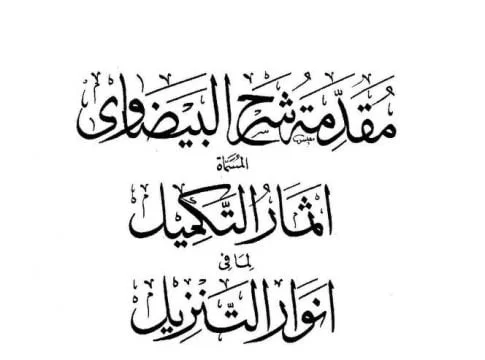 مُقَدِّمَة شَرْح البَيضَاوِى
المُسَمَّاة
اثمَارُ التَّكمِيل
لِمَا فِى
انوَار التَّنزِيل